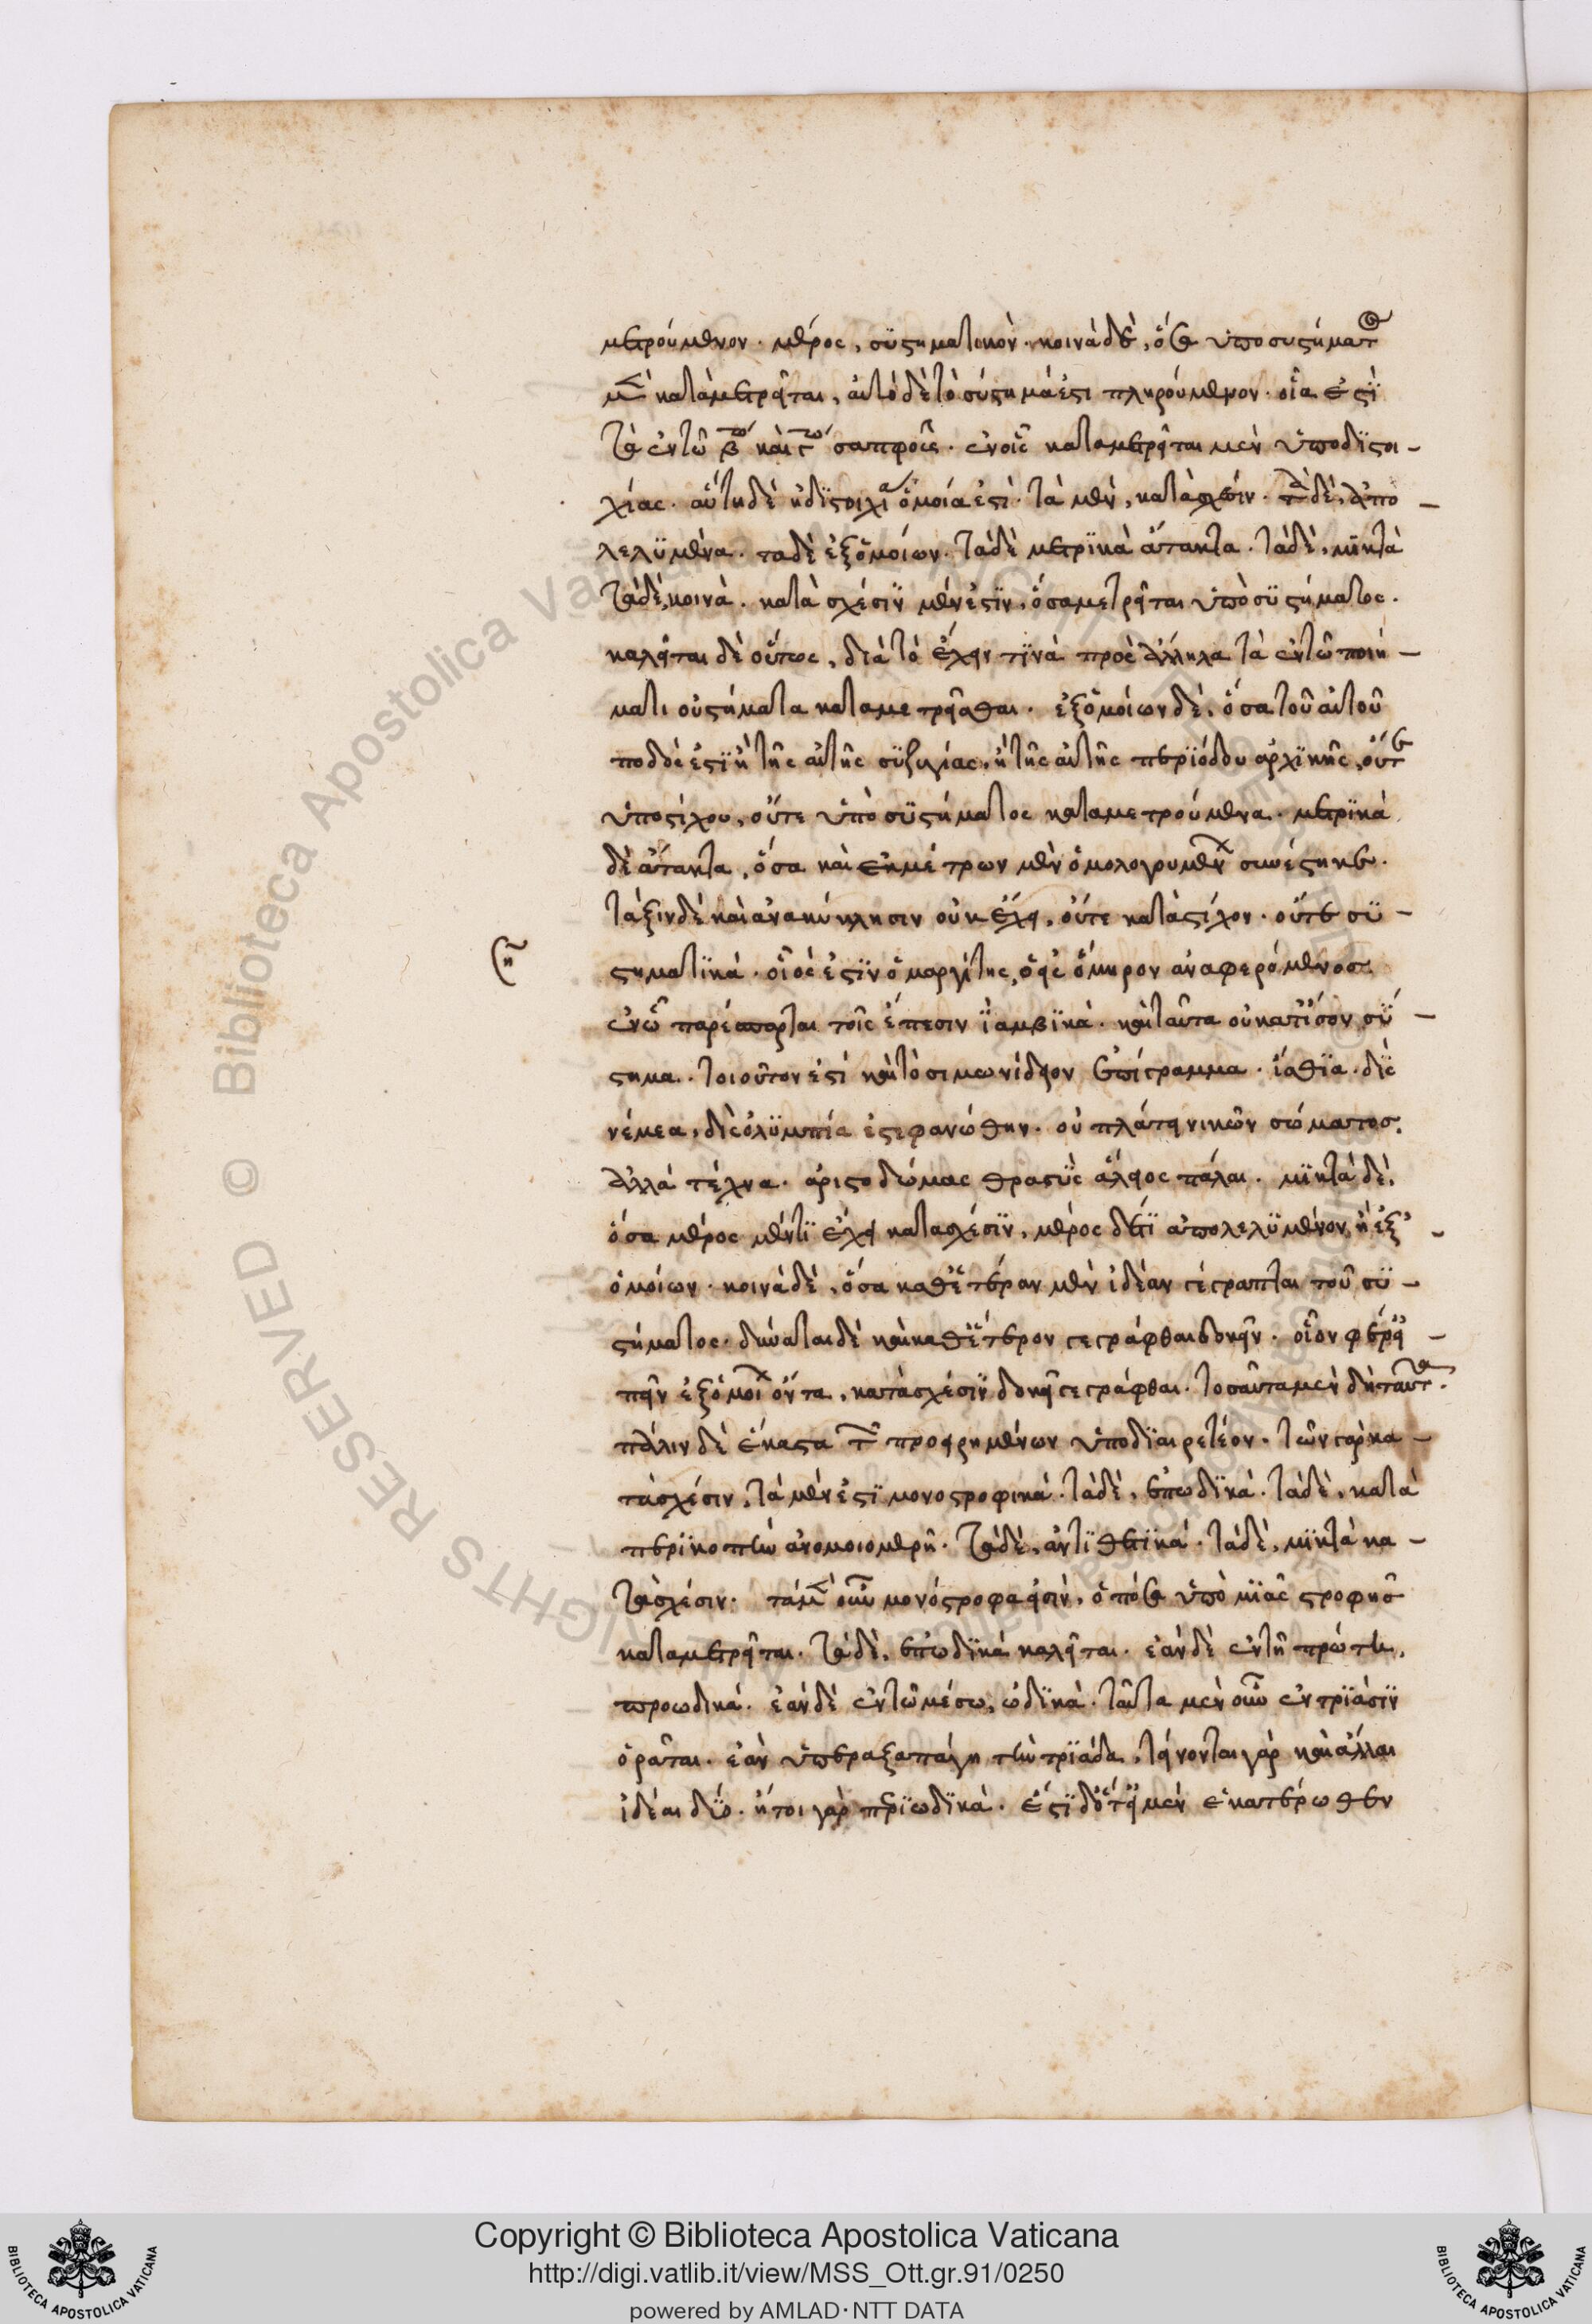 μετρούμενον. μέρος, συστηματικόν. κοινὰ δὲ, ὅτε ὑπὸ συστήματος
μὲν καταμετρεῖται, αὐτὸ δὲ τὸ σύστημά ἐστι πληρούμενον. οἷα ἐστὶ
τὰ ἐν τῶ βω καὶ γω σαπφοῦς. ἐν οἷς καταμετρεῖται μὲν ὑπὸ διστι-
χίας. αὕτη δὲ ἡ διστιχία ὁμοία ἐστί. τὰ μὲν, κατὰ σχέσιν. τὰ δὲ, ἀπο-
λελυμένα. τὰ δὲ ἐξ ὁμοίων. τὰ δὲ μετρικὰ ἄτακτα. τὰ δὲ, μικτὰ
τὰ δὲ, κοινά. κατὰ σχέσιν μέν ἐστιν, ὅσα μετρεῖται ὑπὸ συστήματος.
καλεῖται δὲ οὕτως, διὰ τὸ ἔχειν τινὰ πρὸς ἄλληλα τὰ ἐν τῶ ποιή-
ματι συστήματα καταμετρεῖσθαι. ἐξ ὁμοίων δὲ, ὅσα τοῦ αὐτοῦ
ποδός ἐστι ἢ τῆς αὐτῆς συζυγίας, ἢ τῆς αὐτῆς περιόδου ἀρχικῆς, οὔτε
ὑπὸ στίχου, οὔτε ὑπὸ συστήματος καταμετρούμενα. μετρικὰ
δὲ ἄτακτα, ὅσα καὶ ἐκ μέτρων μὲν ὁμολογουμένων συνέστηκε.
τάξιν δὲ καὶ ἀνακύκλησιν οὐκ ἔχει, οὔτε κατὰ στίχον. οὔτε συ-
στηματικά. οἷός ἐστιν ὁ μαργίτης, ὁ εἰς ὅμηρον ἀναφερόμενος.
ἐν ὧ παρέσπαρται τοῖς ἔπεσιν ἰαμβικά. καὶ ταῦτα οὐ κατ' ἴσον σύ-
στημα. τοιοῦτόν ἐστι καὶ τὸ σιμωνίδειον ἐπίγραμμα. ἴσθμια. δὶς
νέμεα, δὶς ὀλύμπια ἐστεφανώθην. οὐ πλάτει νικῶν σώματος.
ἀλλὰ τέχνα. ἀριστοδάμας θρασὺς ἀλεῖος πάλαι. μικτὰ δὲ,
ὅσα μέρος μέν τι ἔχει κατὰ σχέσιν, μέρος δέ τι ἀπολελυμένον, ἢ ἐξ-
ὁμοίων. κοινὰ δὲ, ὅσα καθ' ἑτέραν μὲν ἰδέαν γέγραπται τοῦ συ-
στήματος. δύναται δὲ καὶ καθ' ἕτερον γεγράφθαι δοκεῖν. οἷον φερε-
πεῖν ἐξ ὁμοίων ὄντα, κατὰ σχέσιν δοκεῖ γεγράφθαι. τοσαῦτα μὲν δὴ ταῦτα.
πάλιν δὲ ἕκαστα τῶν προειρημένων ὑποδιαιρετέον. τῶν γὰρ κα-
τὰ σχέσιν, τὰ μέν ἐστι μονοστροφικά. τὰ δὲ, ἐπωδικά. τὰ δὲ, κατὰ
περικοπὴν ἀνομοιομερῆ. τὰ δὲ, ἀντιθετικά. τὰ δὲ, μικτὰ κα-
τὰ σχέσιν. τὰ μὲν οὖν μονόστροφα εἰσὶν, ὁπότε ὑπὸ μιᾶς στροφῆς
καταμετρεῖται. τὰ δὲ, ἐπωδικὰ καλεῖται. ἐὰν δὲ ἐν τῆ πρώτη,
προωδικά. ἐὰν δὲ ἐν τῶ μέσω, ὠδικά. ταῦτα μὲν οὖν ἐν τριάσιν
ὁρᾶται. ἐὰν ὑπεραξαπάγη τὴν τριάδα, γίνονται γὰρ καὶ ἄλλαι
ἰδέαι δύο. ἤτοι γὰρ περιωδικά. ἐστὶ δ' ὅτε μὲν ἑκατέρωθεν